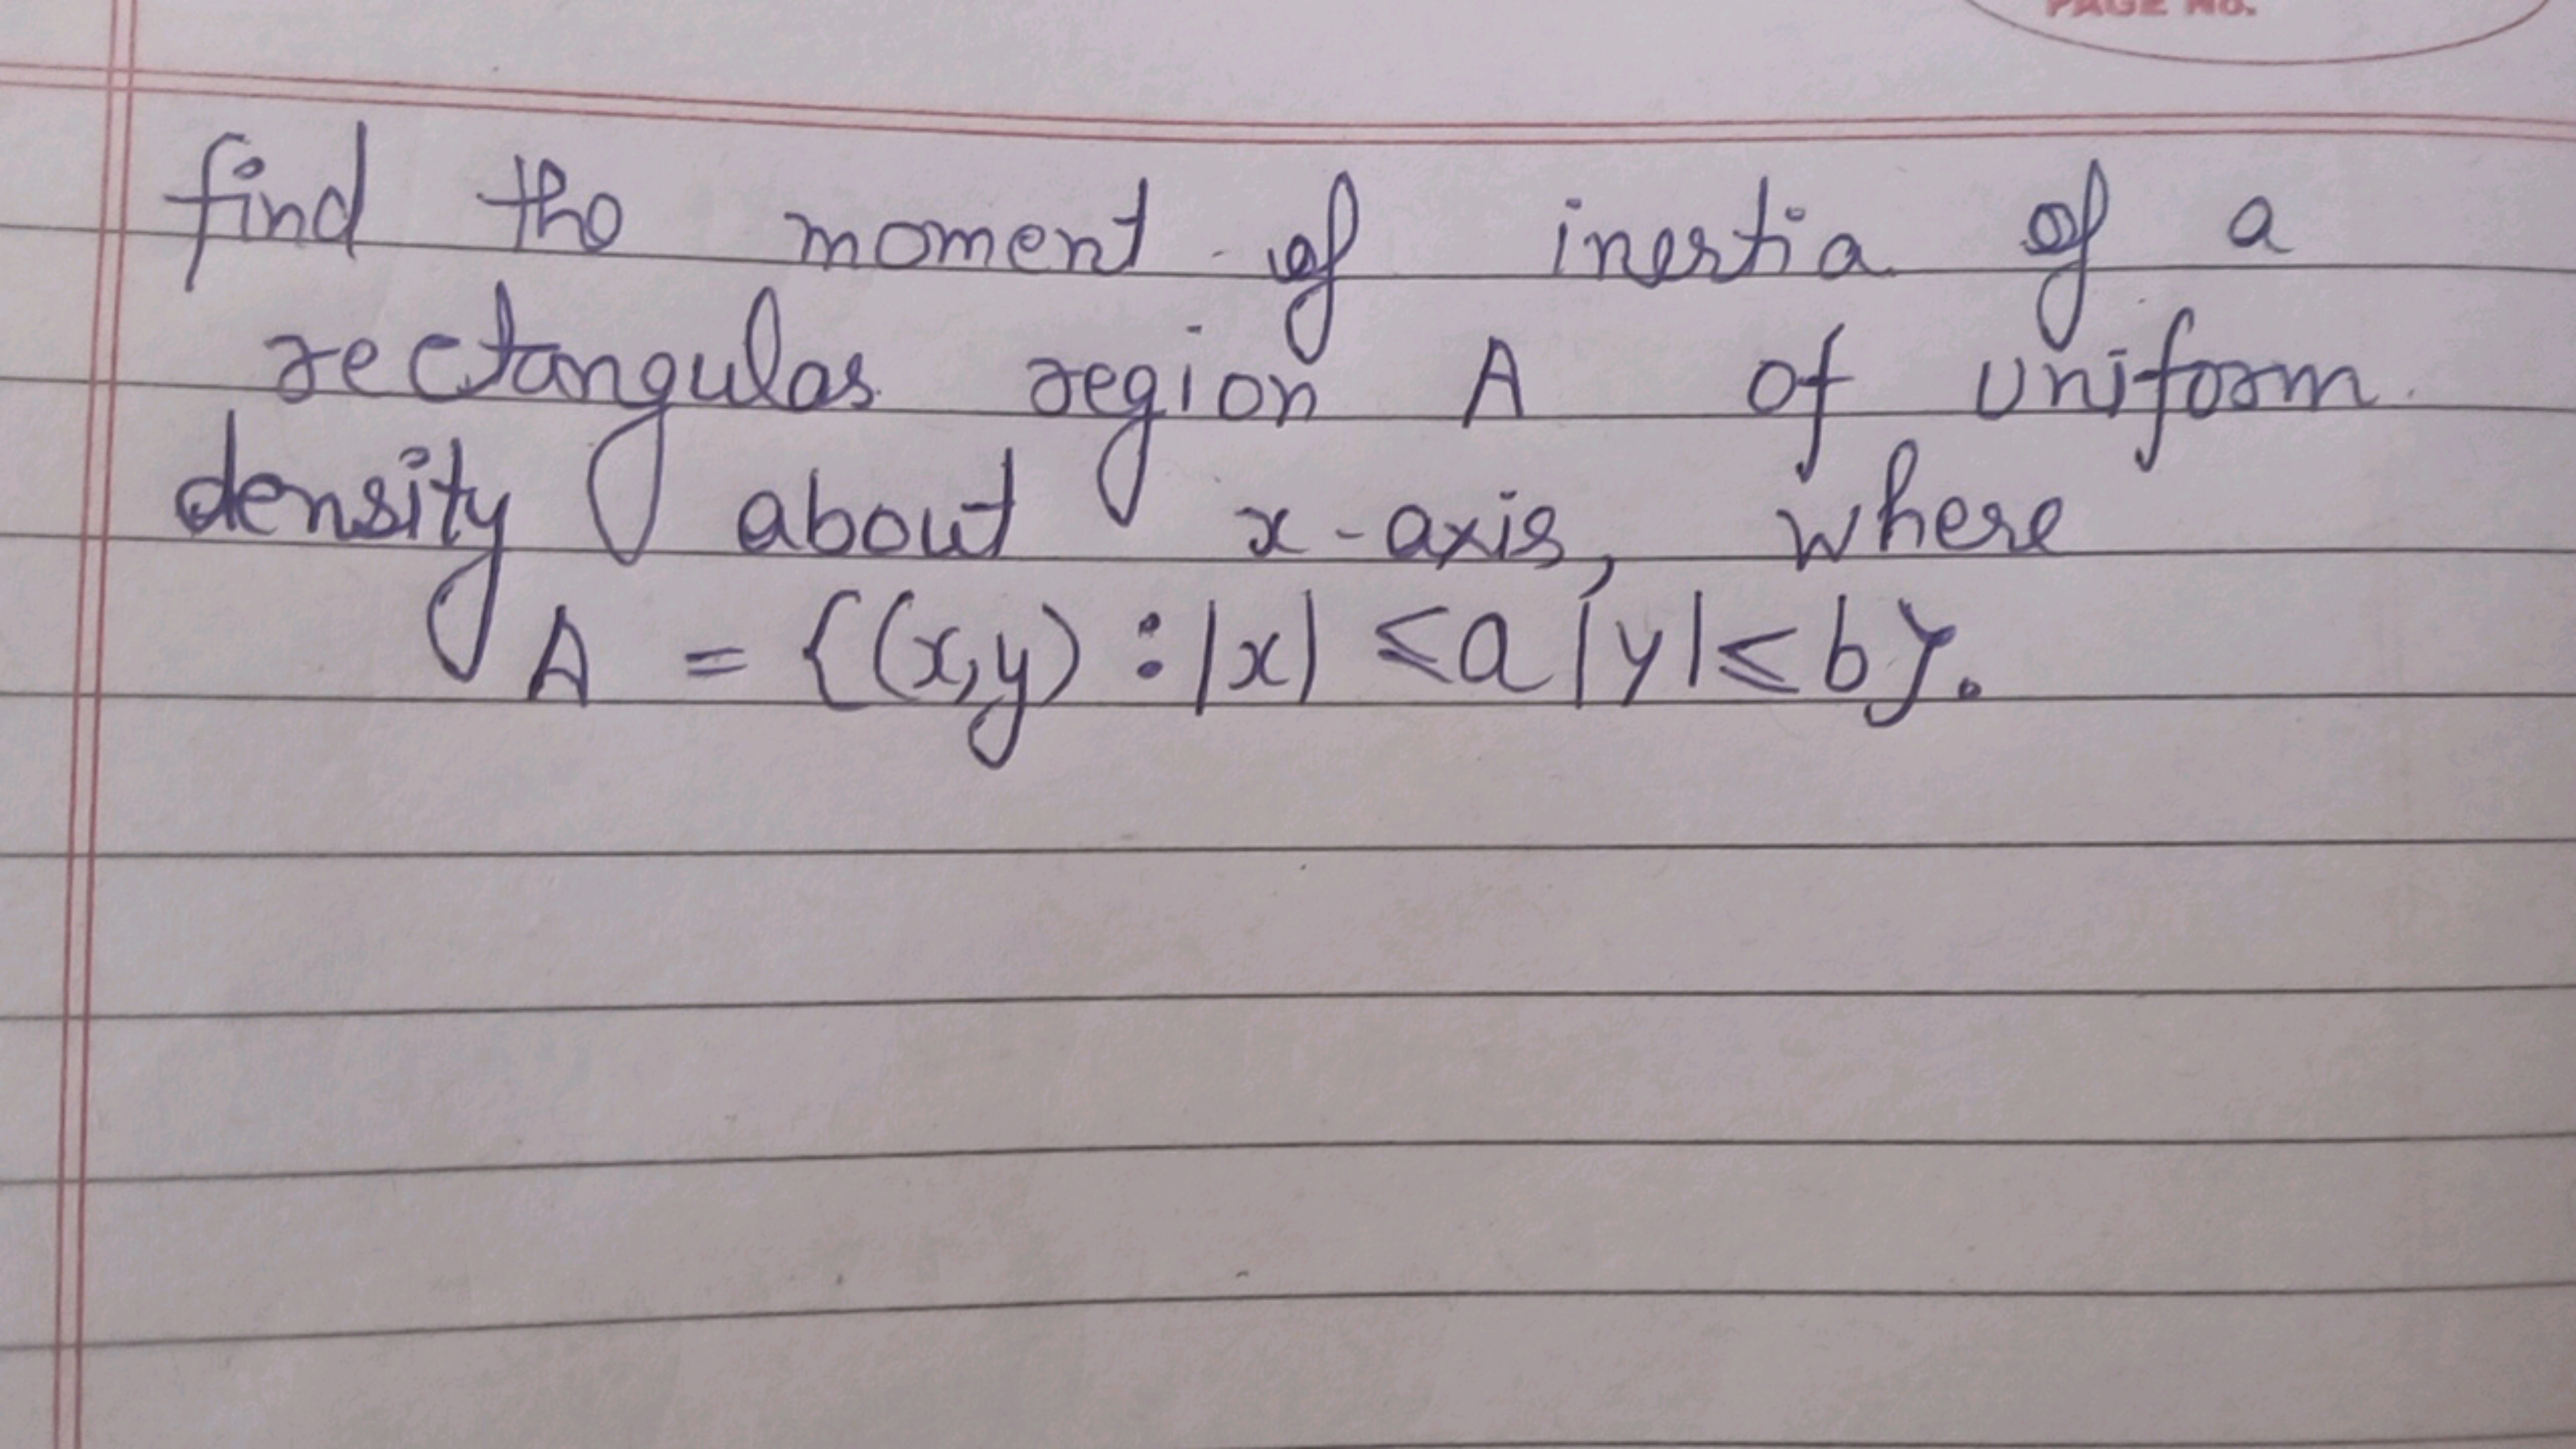 PAGE No.
find the moment of inertia of a
rectangular region A of uniform
density about x-axis, where
A = {(x,y) : |x| ≤ a |y| ≤ b}.